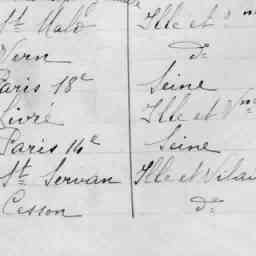 St Malo Ille et
Vern do
Paris 18e Seine
Livré Ille et Vne
Paris 14e Seine
St Servan Ille et Vilai
Cesson do